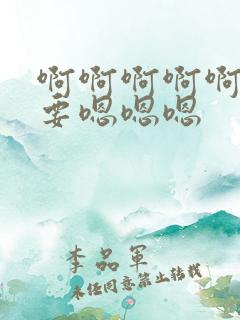 啊啊啊啊啊
要嗯嗯嗯
李品军
未经同意禁止转载